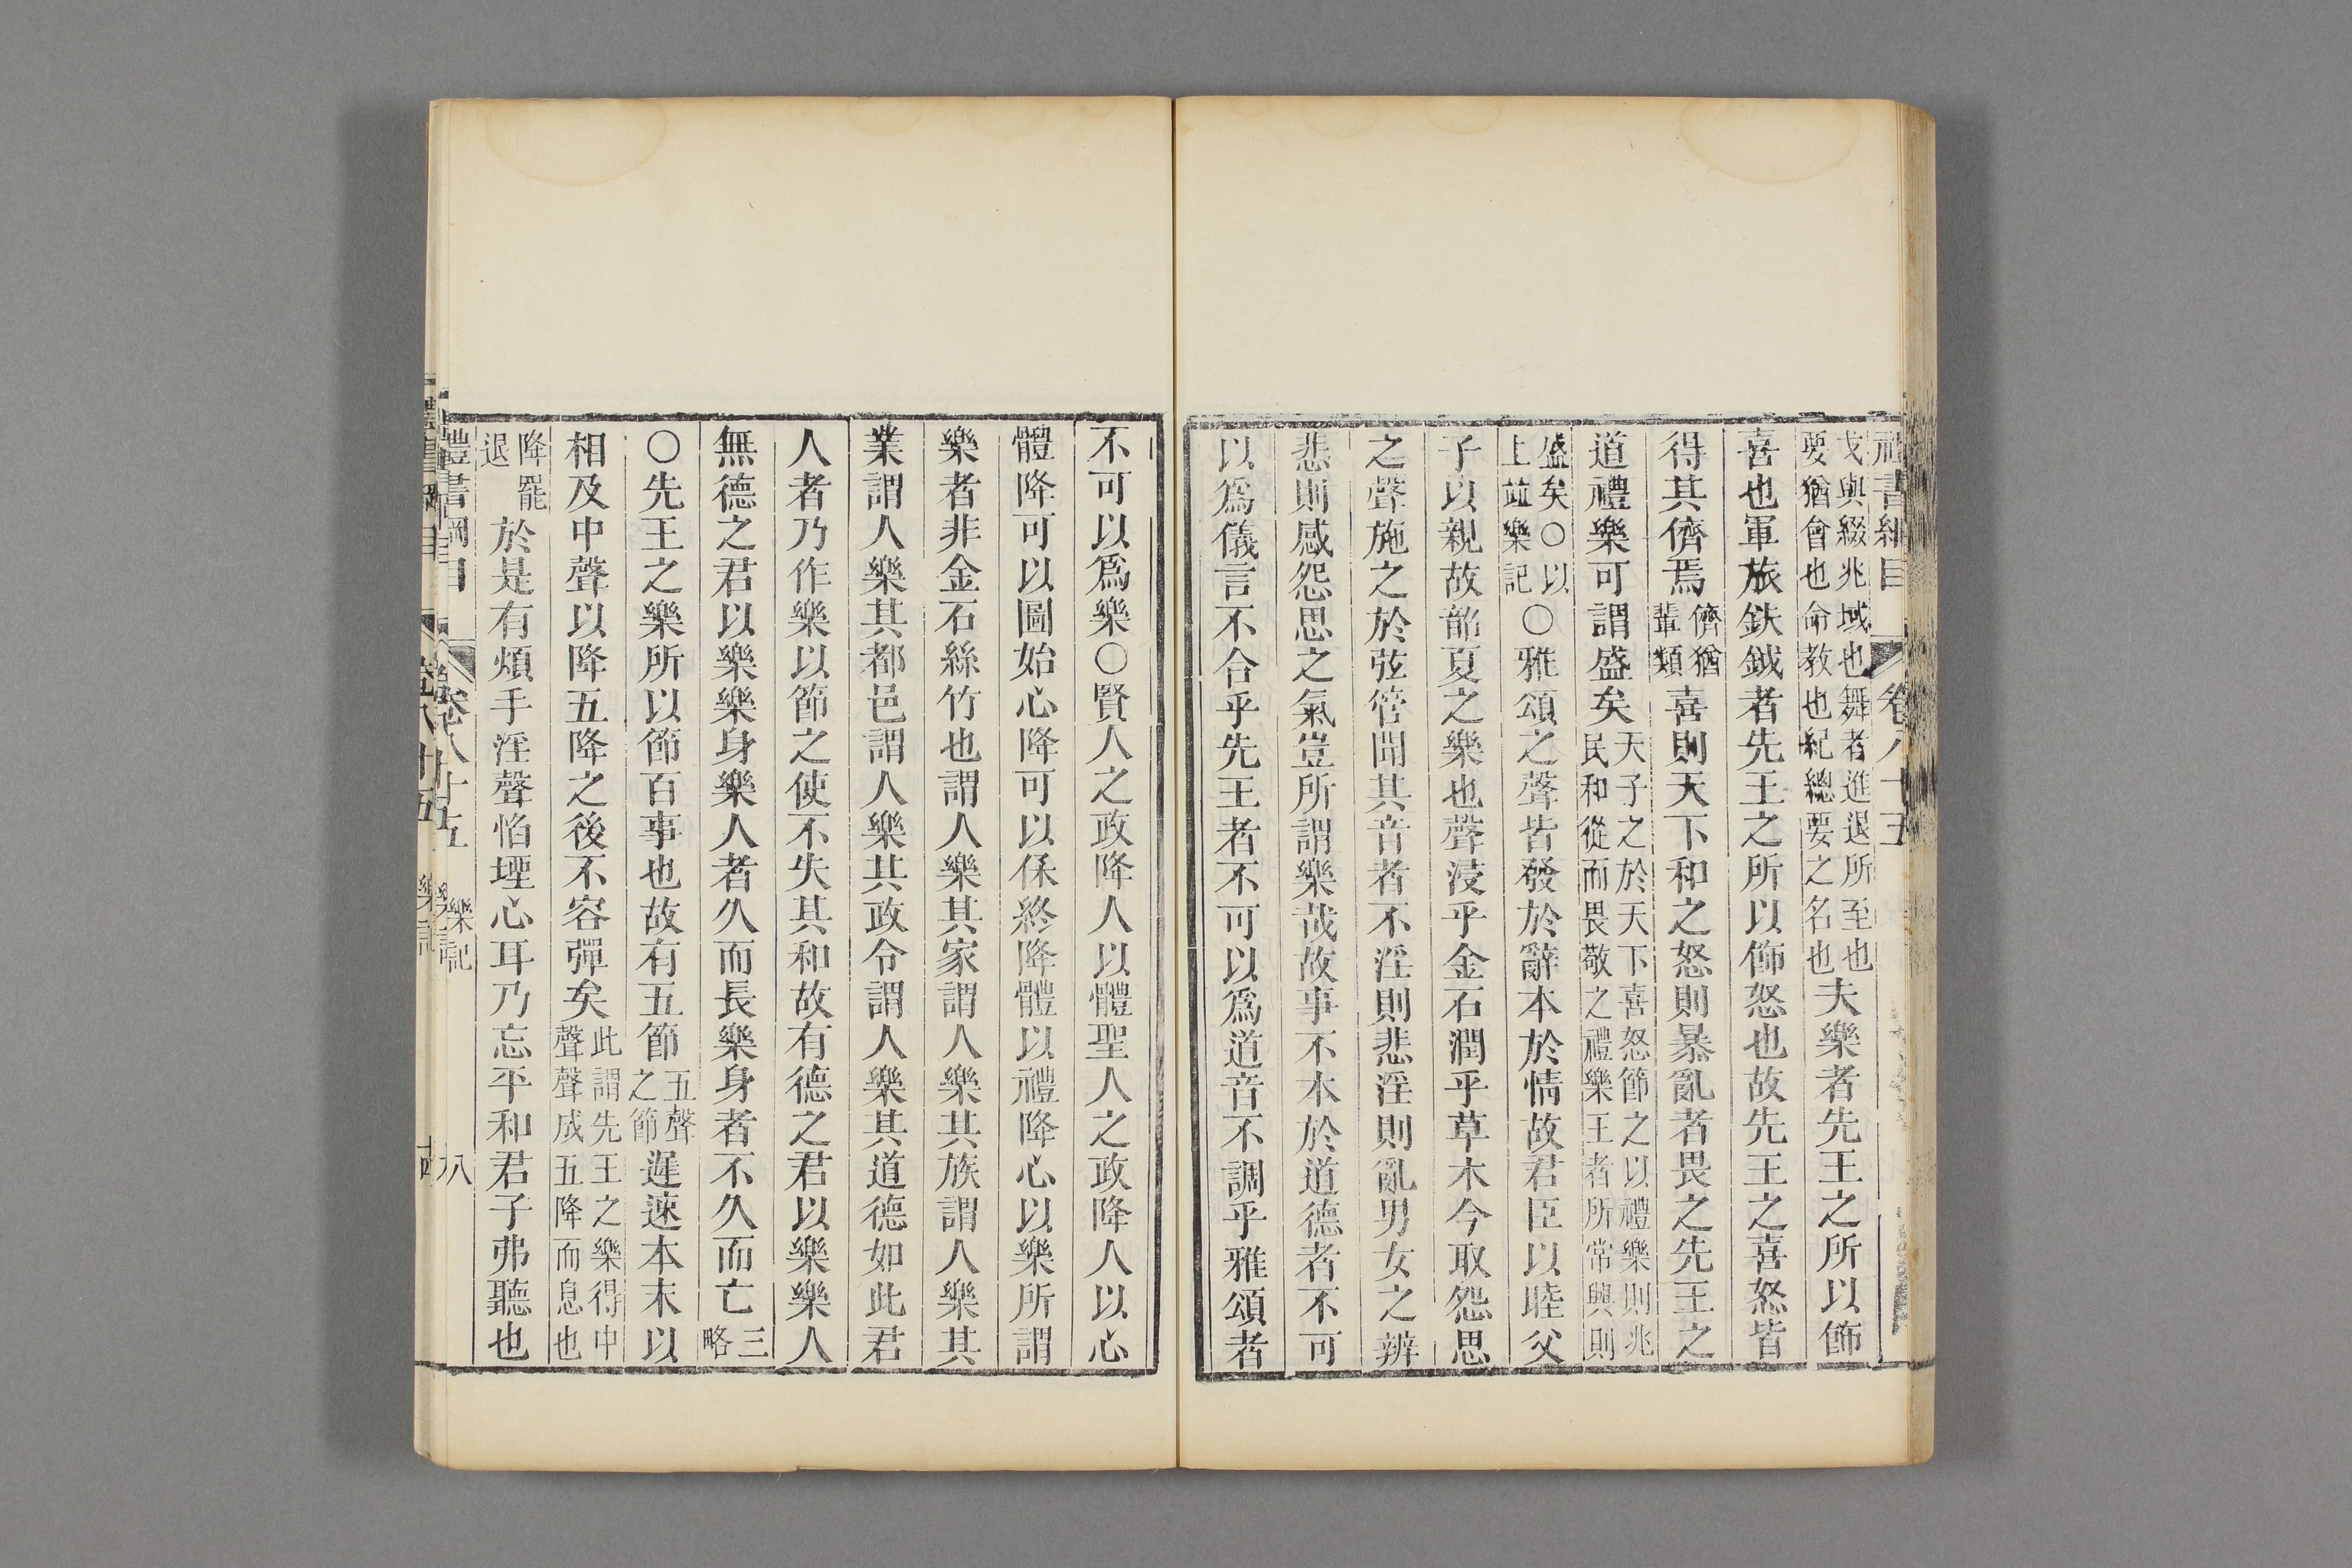 禮書綱目 卷八十五
戈與綴兆域也舞者進退所至也
要猶會也命教也紀總要之名也
夫樂者先王之所以飾
喜也軍旅鈇鉞者先王之所以飾怒也故先王之喜怒皆
得其儕焉
儕猶
輩類
喜則天下和之怒則暴亂者畏之先王之
道禮樂可謂盛矣
天子之於天下喜怒節之以禮樂則兆
民和從而畏敬之禮樂王者所常興則
盛矣○以
上竝樂記
○雅頌之聲皆發於辭本於情故君臣以睦父
子以親故韶夏之樂也聲浸乎金石潤乎草木今取怨思
之聲施之於弦管聞其音者不淫則悲淫則亂男女之辨
悲則感怨思之氣豈所謂樂哉故事不本於道德者不可
以爲儀言不合乎先王者不可以爲道音不調乎雅頌者
不可以爲樂○賢人之政降人以體聖人之政降人以心
體降可以圖始心降可以保終降體以禮降心以樂所謂
樂者非金石絲竹也謂人樂其家謂人樂其族謂人樂其
業謂人樂其都邑謂人樂其政令謂人樂其道德如此君
人者乃作樂以節之使不失其和故有德之君以樂樂人
無德之君以樂樂身樂人者久而長樂身者不久而亡
三
略
○先王之樂所以節百事也故有五節
五聲
之節
遲速本末以
相及中聲以降五降之後不容彈矣
此謂先王之樂得中
聲聲成五降而息也
降罷
退
於是有煩手淫聲慆堙心耳乃忘平和君子弗聽也
禮書綱目 卷八十五 樂記 八